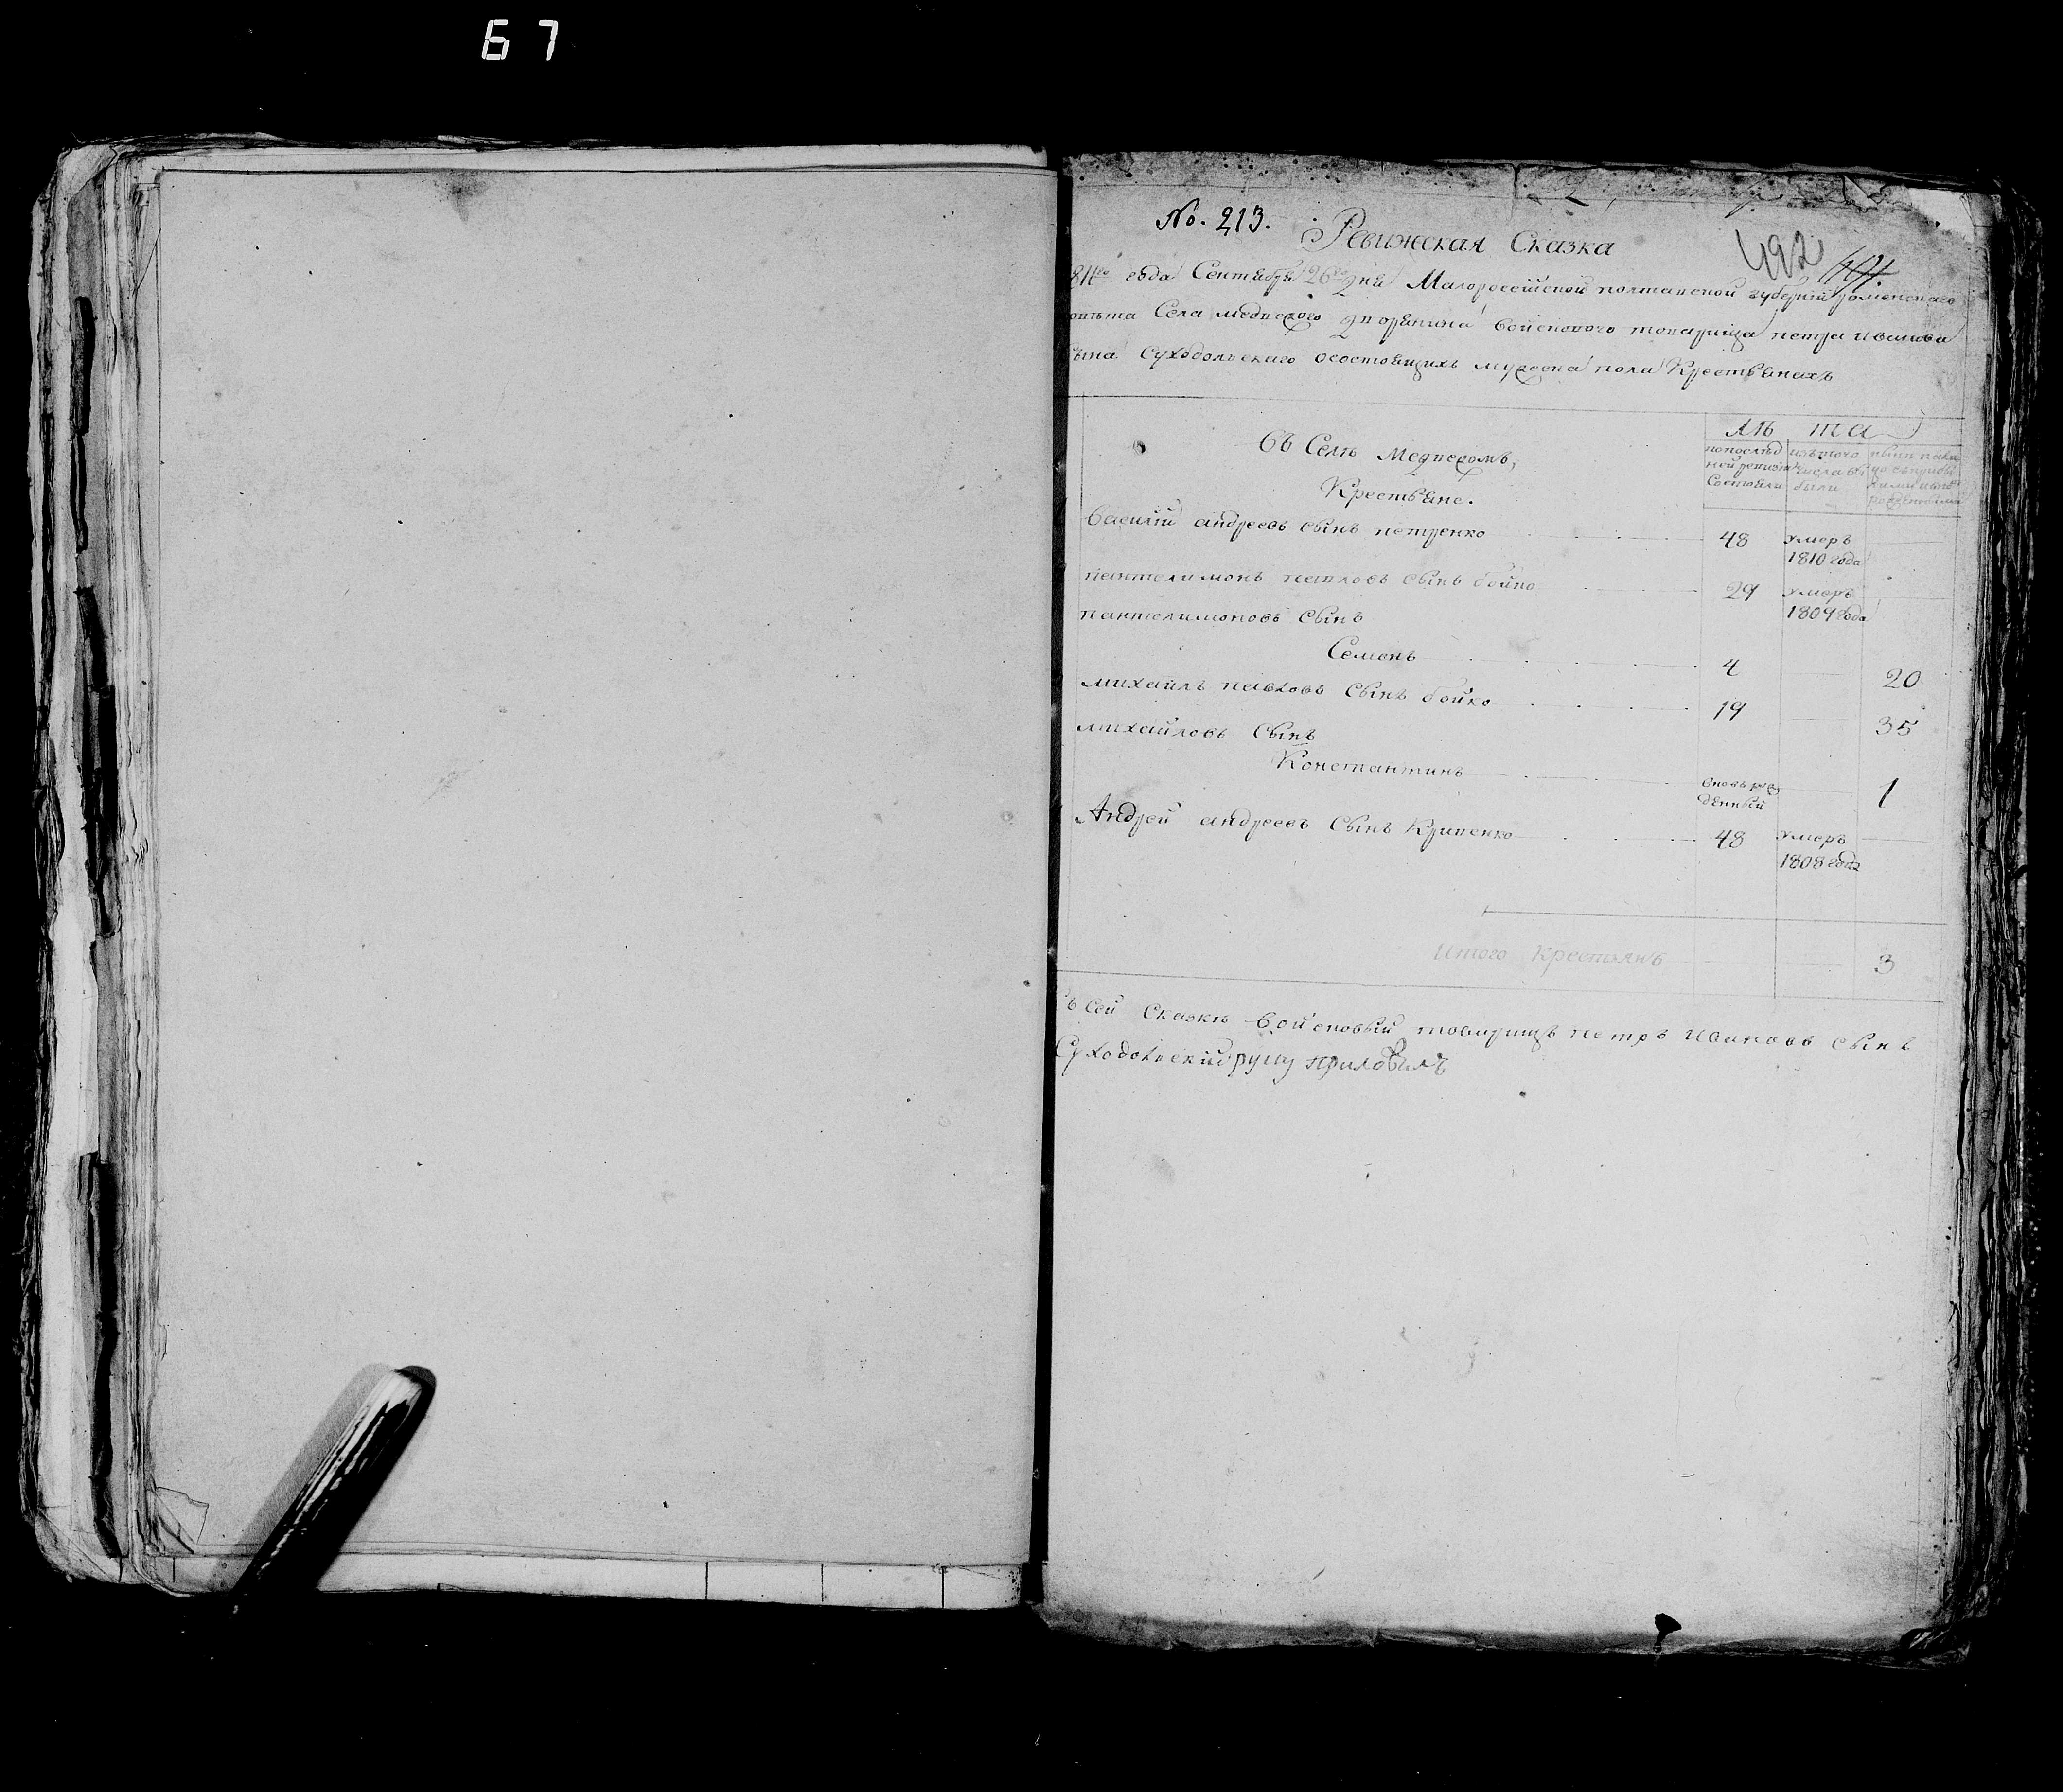 67
No. 213.
Ревижская Сказка
492
811го года Сентября 26го дня Малороссийской полтавской губерній роменскаго
овѣта Села медвежого дворянина войскового товарища петра иванова
сына Суходольскаго осостоящихъ мужеска пола Крестьянахъ
лѣ та
Въ Селѣ Медвежомъ,
Крестьяне.
попослѣд
ней ревизіи
Состояли
изътого
числа вы
были
Василій андреевъ сынъ петренко 48 умеръ
1810 года
пантелимонъ павловъ сынъ бойко 29 умеръ
1809 года
пантелимоновъ сынъ
Семенъ 4 20
михайлъ павловъ сынъ бойко 19 35
михайловъ Сынъ
Константинъ вновь рож
денный 1
Андрей андреевъ Сынъ Кривенко 48 умеръ
1808 года
Итого крестьянъ 3
ъ сей Сказкѣ войсковый товарищъ петръ Ивановъ сынъ
Суходольскій руку приложилъ